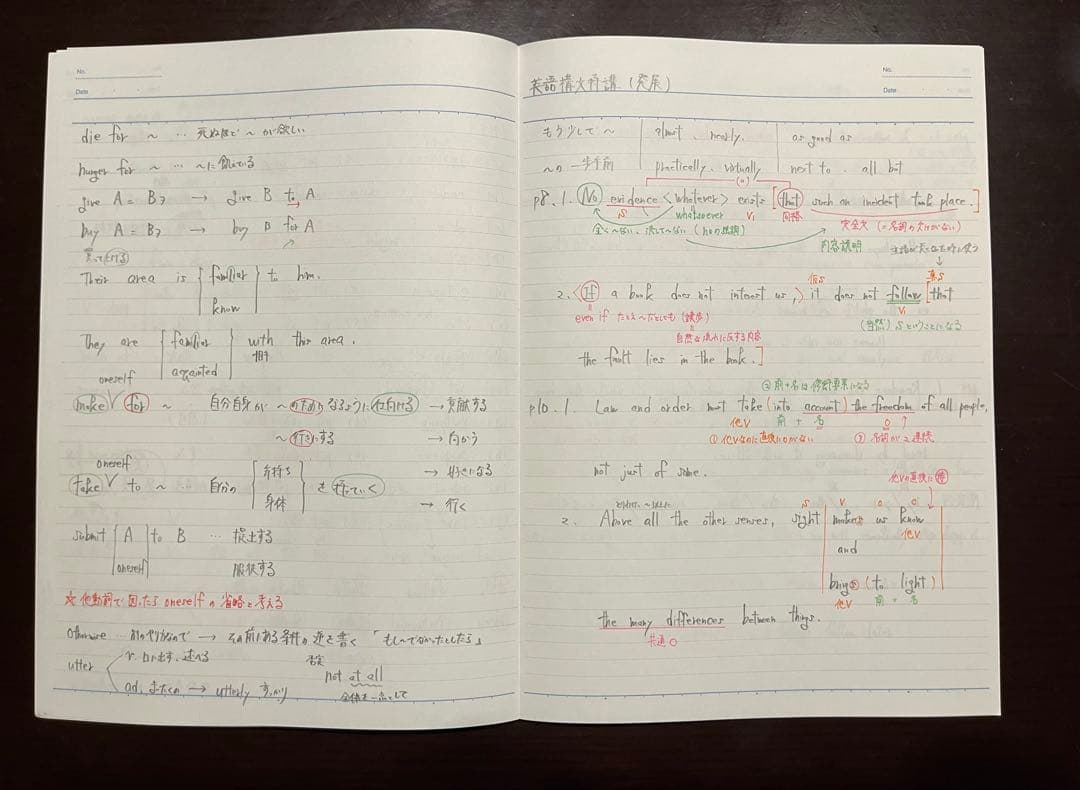 No.
Date
die for ～ … 死ぬほど～が欲しい
hunger for ～ … ～に飢えている
give A = Bを → give B to A
buy A = Bを → buy B for A
買ってあげる
Their area is familiar to him.
know
They are familiar with this area.
acquainted
oneself
make for ～ 自分自身が～のためになるように仕向ける → 貢献する
～行きにする → 向かう
oneself
take to ～ … 自分の 気持ち を持っていく → 好きになる
身体 → 行く
submit A to B … 提出する
oneself 服従する
☆他動詞で困ったらoneselfの省略と考える
otherwise … 別のやり方なので → その前にある条件の逆を書く「もし～でなかったとしたら」
utter v. 口に出す、述べる
ad. まったくの → utterly すっかり
否定
not at all
全体を一点として
No.
Date
英語構文特講（発展）
もう少しで～ almost, nearly, as good as
～の一歩手前 practically, virtually next to, all but
p8.1. No evidence <whatever> exists [that such an incident took place.]
S whatsoever Vi 同格 完全文 (=名詞の欠けがない)
全く～ない、決して～ない (noの強調) 内容説明
仮S 真S
2. <If a book does not interest us,> it does not follow [that
even if たとえ～だとしても (譲歩) Vi
自然な流れに反する内容 (当然) Sということになる
the fault lies in the book.]
②前+名は修飾要素になる
p10.1. Law and order must take (into account) the freedom of all people,
他V 前+名 O
①他Vなのに直後にOがない ③名詞が2連続
not just of some.
他Vの直後に
とりわけ、～以上に S V O C
2. Above all the other senses, sight makes us know
他V
and
brings (to light)
他V 前+名
the many differences between things.
共通O